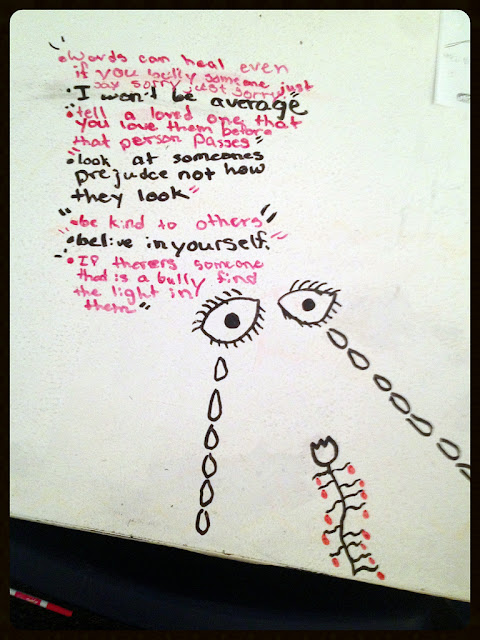 "•Words can heal even
if you bully someone just
say sorry just sorry"
•I won't be average"
•tell a loved one that
you love them before
that person passes"
"•look at someones
prejudce not how
they look"
"•be kind to others"
"•belive in yourself."
"•If therers someone
that is a bully find
the light in
them"